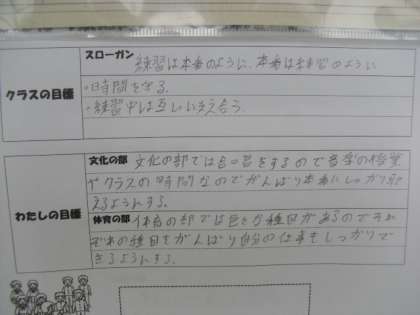 スローガン 練習は本番のように、本番は練習のように
クラスの目標
・時間を守る。
・練習中は互いに支え合う。
わたしの目標
文化の部 文化の部では
をするので
やクラスの時間なのでがんばり本番にしっかり
えるようにする。
体育の部 体育の部では色々な種目があるのですが
種目をがんばり自分の仕事もしっかりで
きるようにする。